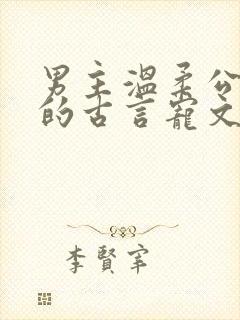 男主溫柔公
的古言寵文
李賢宰